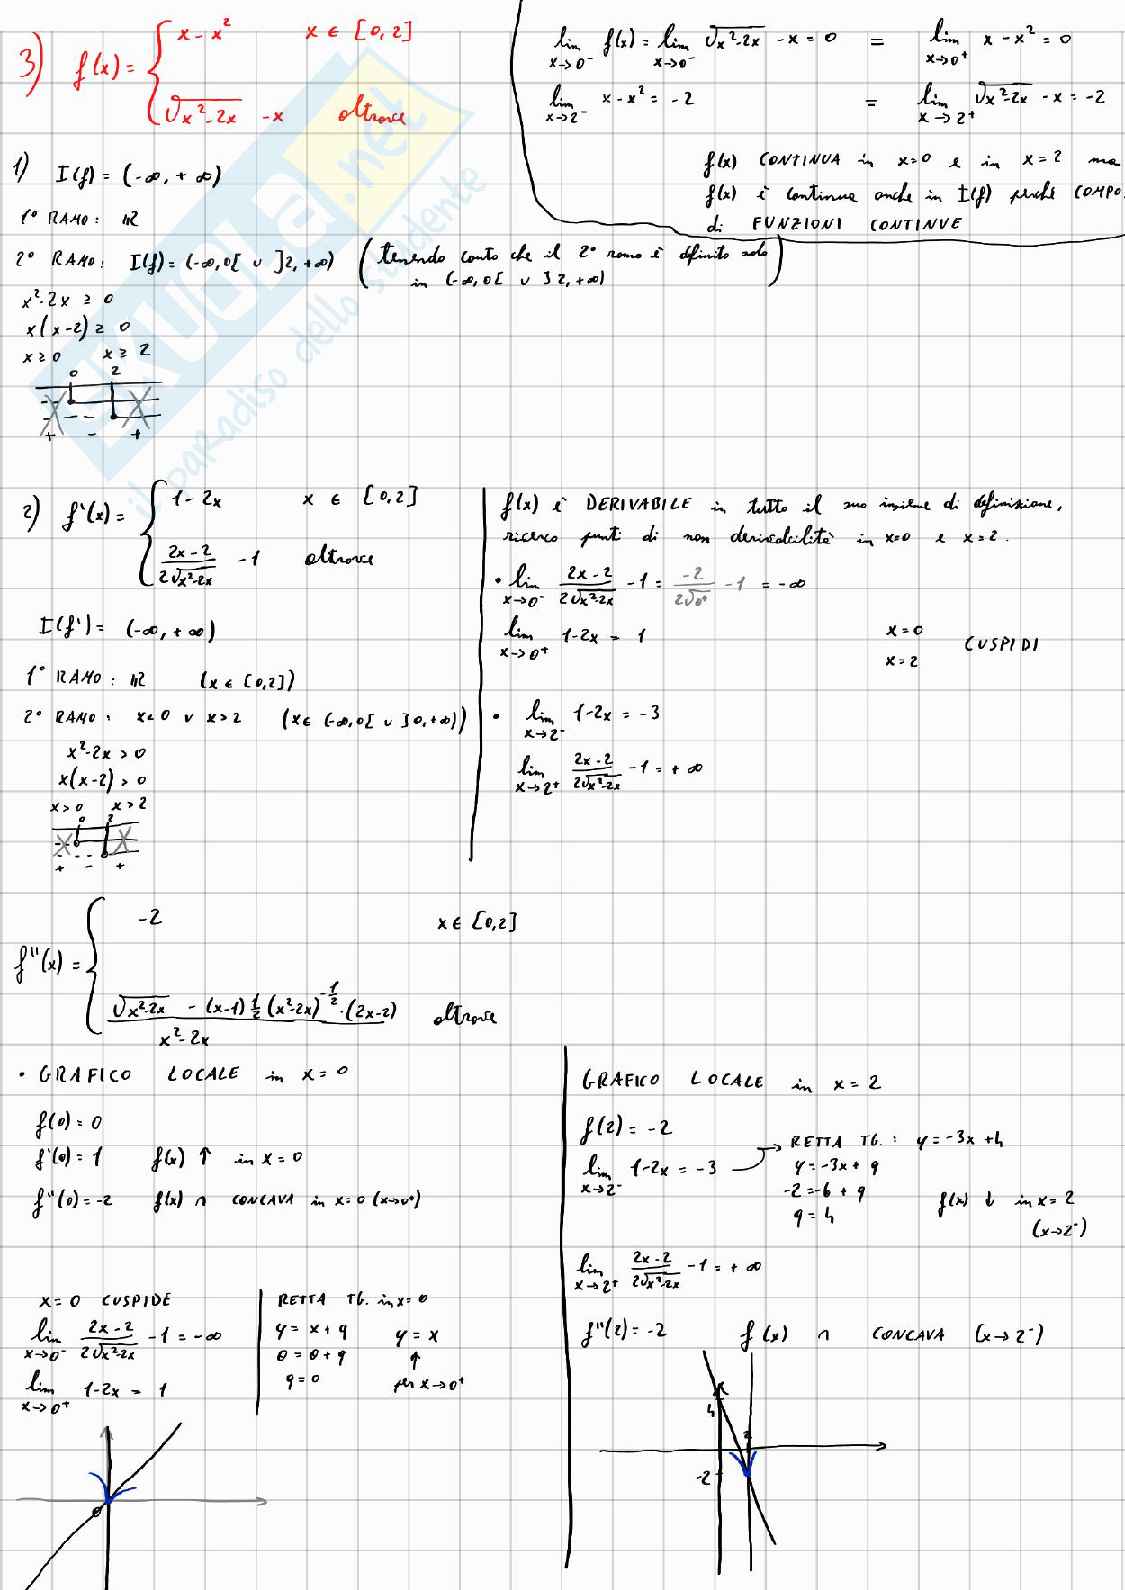 3) f(x) = { x - x² x ∈ [0,2]
√x²-2x - x oltrove
lim x→0⁻ f(x) = lim x→0⁻ √x²-2x - x = 0 = lim x→0⁺ x - x² = 0
lim x→2⁻ x - x² = -2 = lim x→2⁺ √x²-2x - x = -2
f(x) CONTINUA in x=0 e in x=2 ma
f(x) è continua anche in I(f) perché COMPO.
di FUNZIONI CONTINUE
1) I(f) = (-∞, +∞)
1° RAMO: ℝ
2° RAMO: I(f) = (-∞,0[ ∪ ]2,+∞) (tenendo conto che il 2° ramo è definito solo
in (-∞,0[ ∪ ]2,+∞))
x²-2x ≥ 0
x(x-2) ≥ 0
x ≥ 0 x ≥ 2
0 2
+ - +
2) f'(x) = { 1-2x x ∈ [0,2]
2x-2 / 2√x²-2x - 1 oltrove
I(f') = (-∞, +∞)
1° RAMO: ℝ (x ∈ [0,2])
2° RAMO: x<0 ∨ x>2 (x ∈ (-∞,0[ ∪ ]0,+∞))
x²-2x > 0
x(x-2) > 0
x>0 x>2
0 2
+ - +
f(x) è DERIVABILE in tutto il suo insieme di definizione,
ricerco punti di non derivabilità in x=0 e x=2.
• lim x→0⁻ 2x-2 / 2√x²-2x - 1 = -2 / 2√0⁺ - 1 = -∞
lim x→0⁺ 1-2x = 1
x=0
x=2 CUSPIDI
• lim x→2⁻ 1-2x = -3
lim x→2⁺ 2x-2 / 2√x²-2x - 1 = +∞
f''(x) = { -2 x ∈ [0,2]
√x²-2x - (x-1) ½ (x²-2x)^-½ · (2x-2) / x²-2x oltrove
• GRAFICO LOCALE in x=0
f(0) = 0
f'(0) = 1 f(x) ↑ in x=0
f''(0) = -2 f(x) ∩ CONCAVA in x=0 (x→0⁺)
x=0 CUSPIDE
lim x→0⁻ 2x-2 / 2√x²-2x - 1 = -∞
lim x→0⁺ 1-2x = 1
RETTA TG. in x=0
y = x+q y = x
0 = 0+q ↑
q = 0 per x→0⁺
0
GRAFICO LOCALE in x=2
f(2) = -2
lim x→2⁻ 1-2x = -3 → RETTA TG.: y = -3x+4
y = -3x+q
-2 = -6+q
q = 4
f(x) ↓ in x=2
(x→2⁻)
lim x→2⁺ 2x-2 / 2√x²-2x - 1 = +∞
f''(2) = -2 f(x) ∩ CONCAVA (x→2⁻)
4
2
-2
SKUOLA.net
il paradiso dello studente